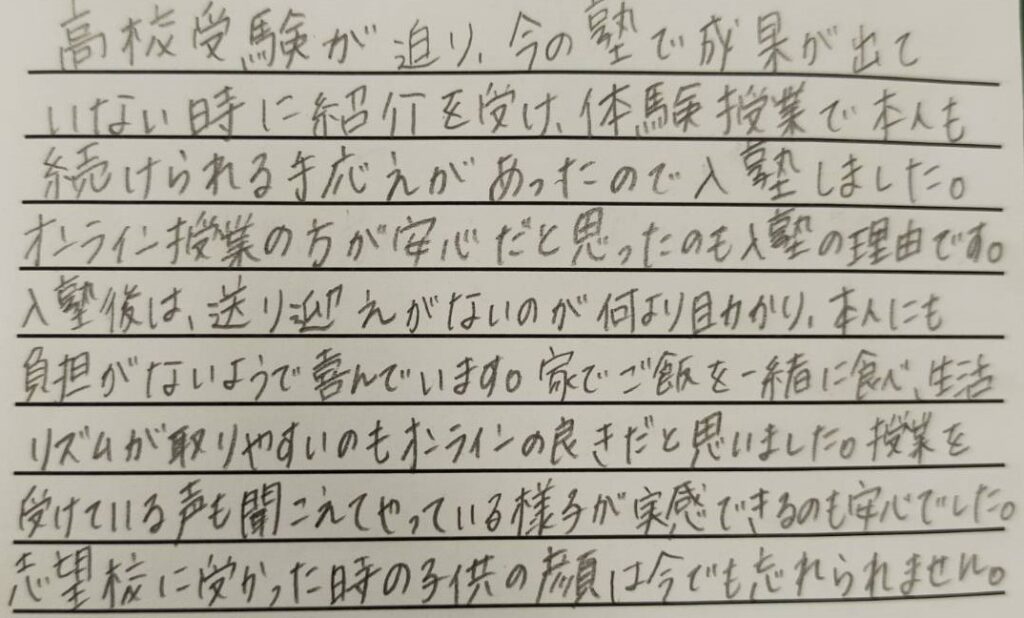 高校受験が迫り、今の塾で成果が出て
いない時に紹介を受け、体験授業で本人も
続けられる手応えがあったので入塾しました。
オンライン授業の方が安心だと思ったのも入塾の理由です。
入塾後は、送り迎えがないのが何より助かり、本人にも
負担がないようで喜んでいます。家でご飯を一緒に食べ、生活
リズムが取りやすいのもオンラインの良さだと思いました。授業を
受けている声も聞こえてやっている様子が実感できるのも安心でした。
志望校に受かった時の子供の顔は今でも忘れられません。